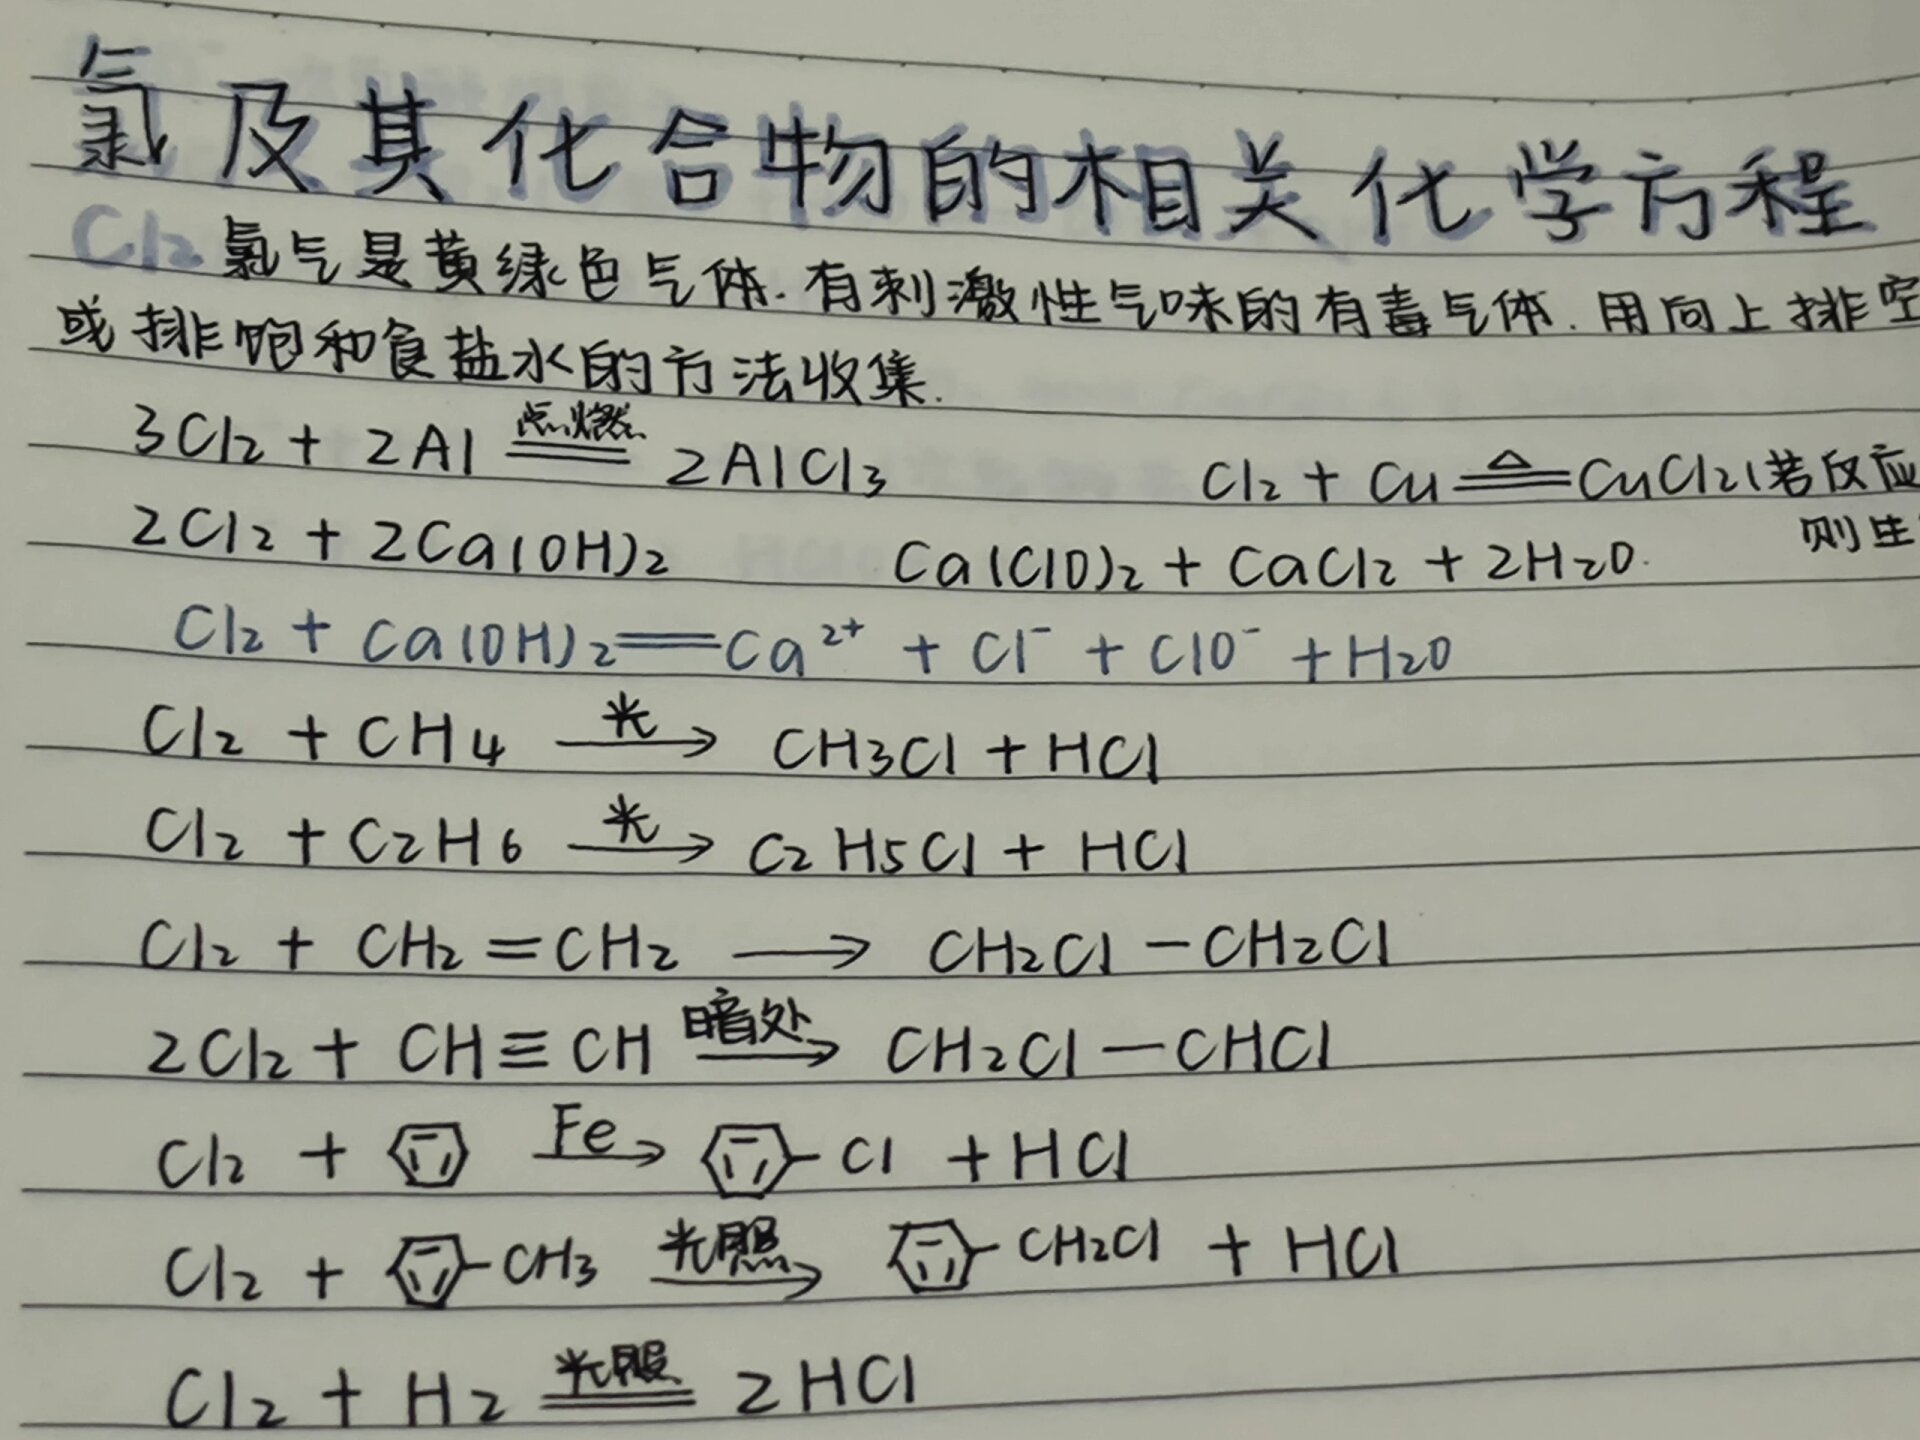 氯及其化合物的相关化学方程
Cl2 氯气是黄绿色气体.有刺激性气味的有毒气体.用向上排空
或排饱和食盐水的方法收集.
3Cl2 + 2Al 点燃 == 2AlCl3 Cl2 + Cu △ == CuCl2(若反应
则生
2Cl2 + 2Ca(OH)2 Ca(ClO)2 + CaCl2 + 2H2O.
Cl2 + Ca(OH)2 == Ca²⁺ + Cl⁻ + ClO⁻ + H2O
Cl2 + CH4 光 → CH3Cl + HCl
Cl2 + C2H6 光 → C2H5Cl + HCl
Cl2 + CH2=CH2 → CH2Cl—CH2Cl
2Cl2 + CH≡CH 暗处 → CH2Cl—CHCl
Cl2 + Fe → -Cl + HCl
Cl2 + -CH3 光照 → -CH2Cl + HCl
Cl2 + H2 光照 == 2HCl